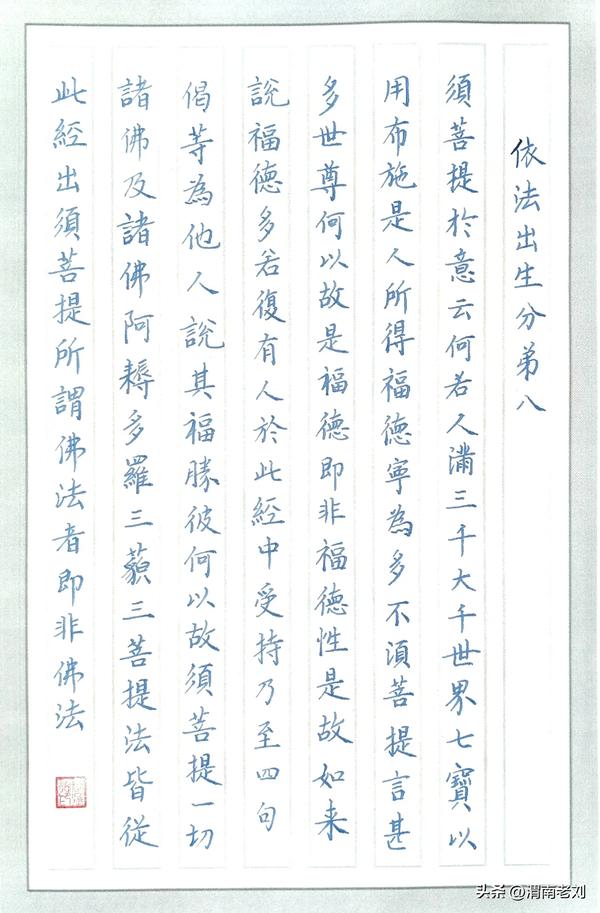 依法出生分弟八
須菩提於意云何若人滿三千大千世界七寶以
用布施是人所得福德寧為多不湏菩提言甚
多世尊何以故是福德即非福德性是故如来
說福德多若復有人於此經中受持乃至四句
偈等為他人說其福勝彼何以故須菩提一切
諸佛及諸佛阿耨多羅三藐三菩提法皆從
此經出須菩提所謂佛法者即非佛法
头条 @渭南老刘